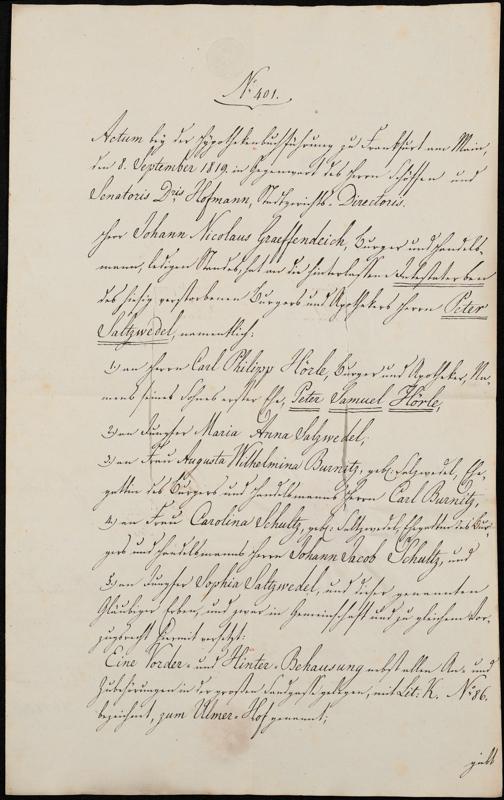 No. 401.
Actum bey der Hypothekenbuchführung zu Frankfurt am Main,
den 8. September 1819 in Gegenwart des Herrn Schöffen und
Senatoris Dris Hofmann, Stadtgerichts-Directoris.
Herr Johann Nicolaus Graeffendeich, Burger und Handels-
mann, ledigen Standes, hat an die hinterlassene Intestaterben
des hiesig verstorbenen Burgers und Apothekers Herrn Peter
Saltzwedel, namentlich:
1.) an Herrn Carl Philipp Hörle, Burger und Apotheker, Na-
mens seines Sohnes erster Ehe, Peter Samuel Hörle,
2.) an Jungfer Maria Anna Salzwedel,
3.) an Frau Augusta Wilhelmina Burnitz, geb. Salzwedel, Ehe-
gattin des Burgers und Handelsmanns Herrn Carl Burnitz,
4.) an Frau Carolina Schultz, geb. Saltzwedel, Ehegattin des Bur-
gers und Handelsmanns Herrn Johann Jacob Schultz, und
5.) an Jungfer Sophia Saltzwedel, und dieser genannten
Gläubiger Erben, und zwar in Gemeinschaft und zu gleichem Vor-
zugsrecht hiermit versetzt:
Eine Vorder- und Hinter-Behausung nebst allen An- und
Zubehörungen in der grosen Sandgasse gelegen, mit Lit: K. No. 86.
bezeichnet, zum Ulmer-Hof genannt;